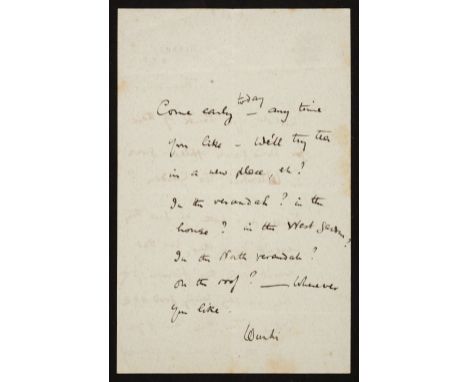 Come early today — any time
you like — We'll try tea
in a new place, eh?
In the verandah? in the
house? in the West garden?
In the North verandah?
on the roof? — Wherever
you like.